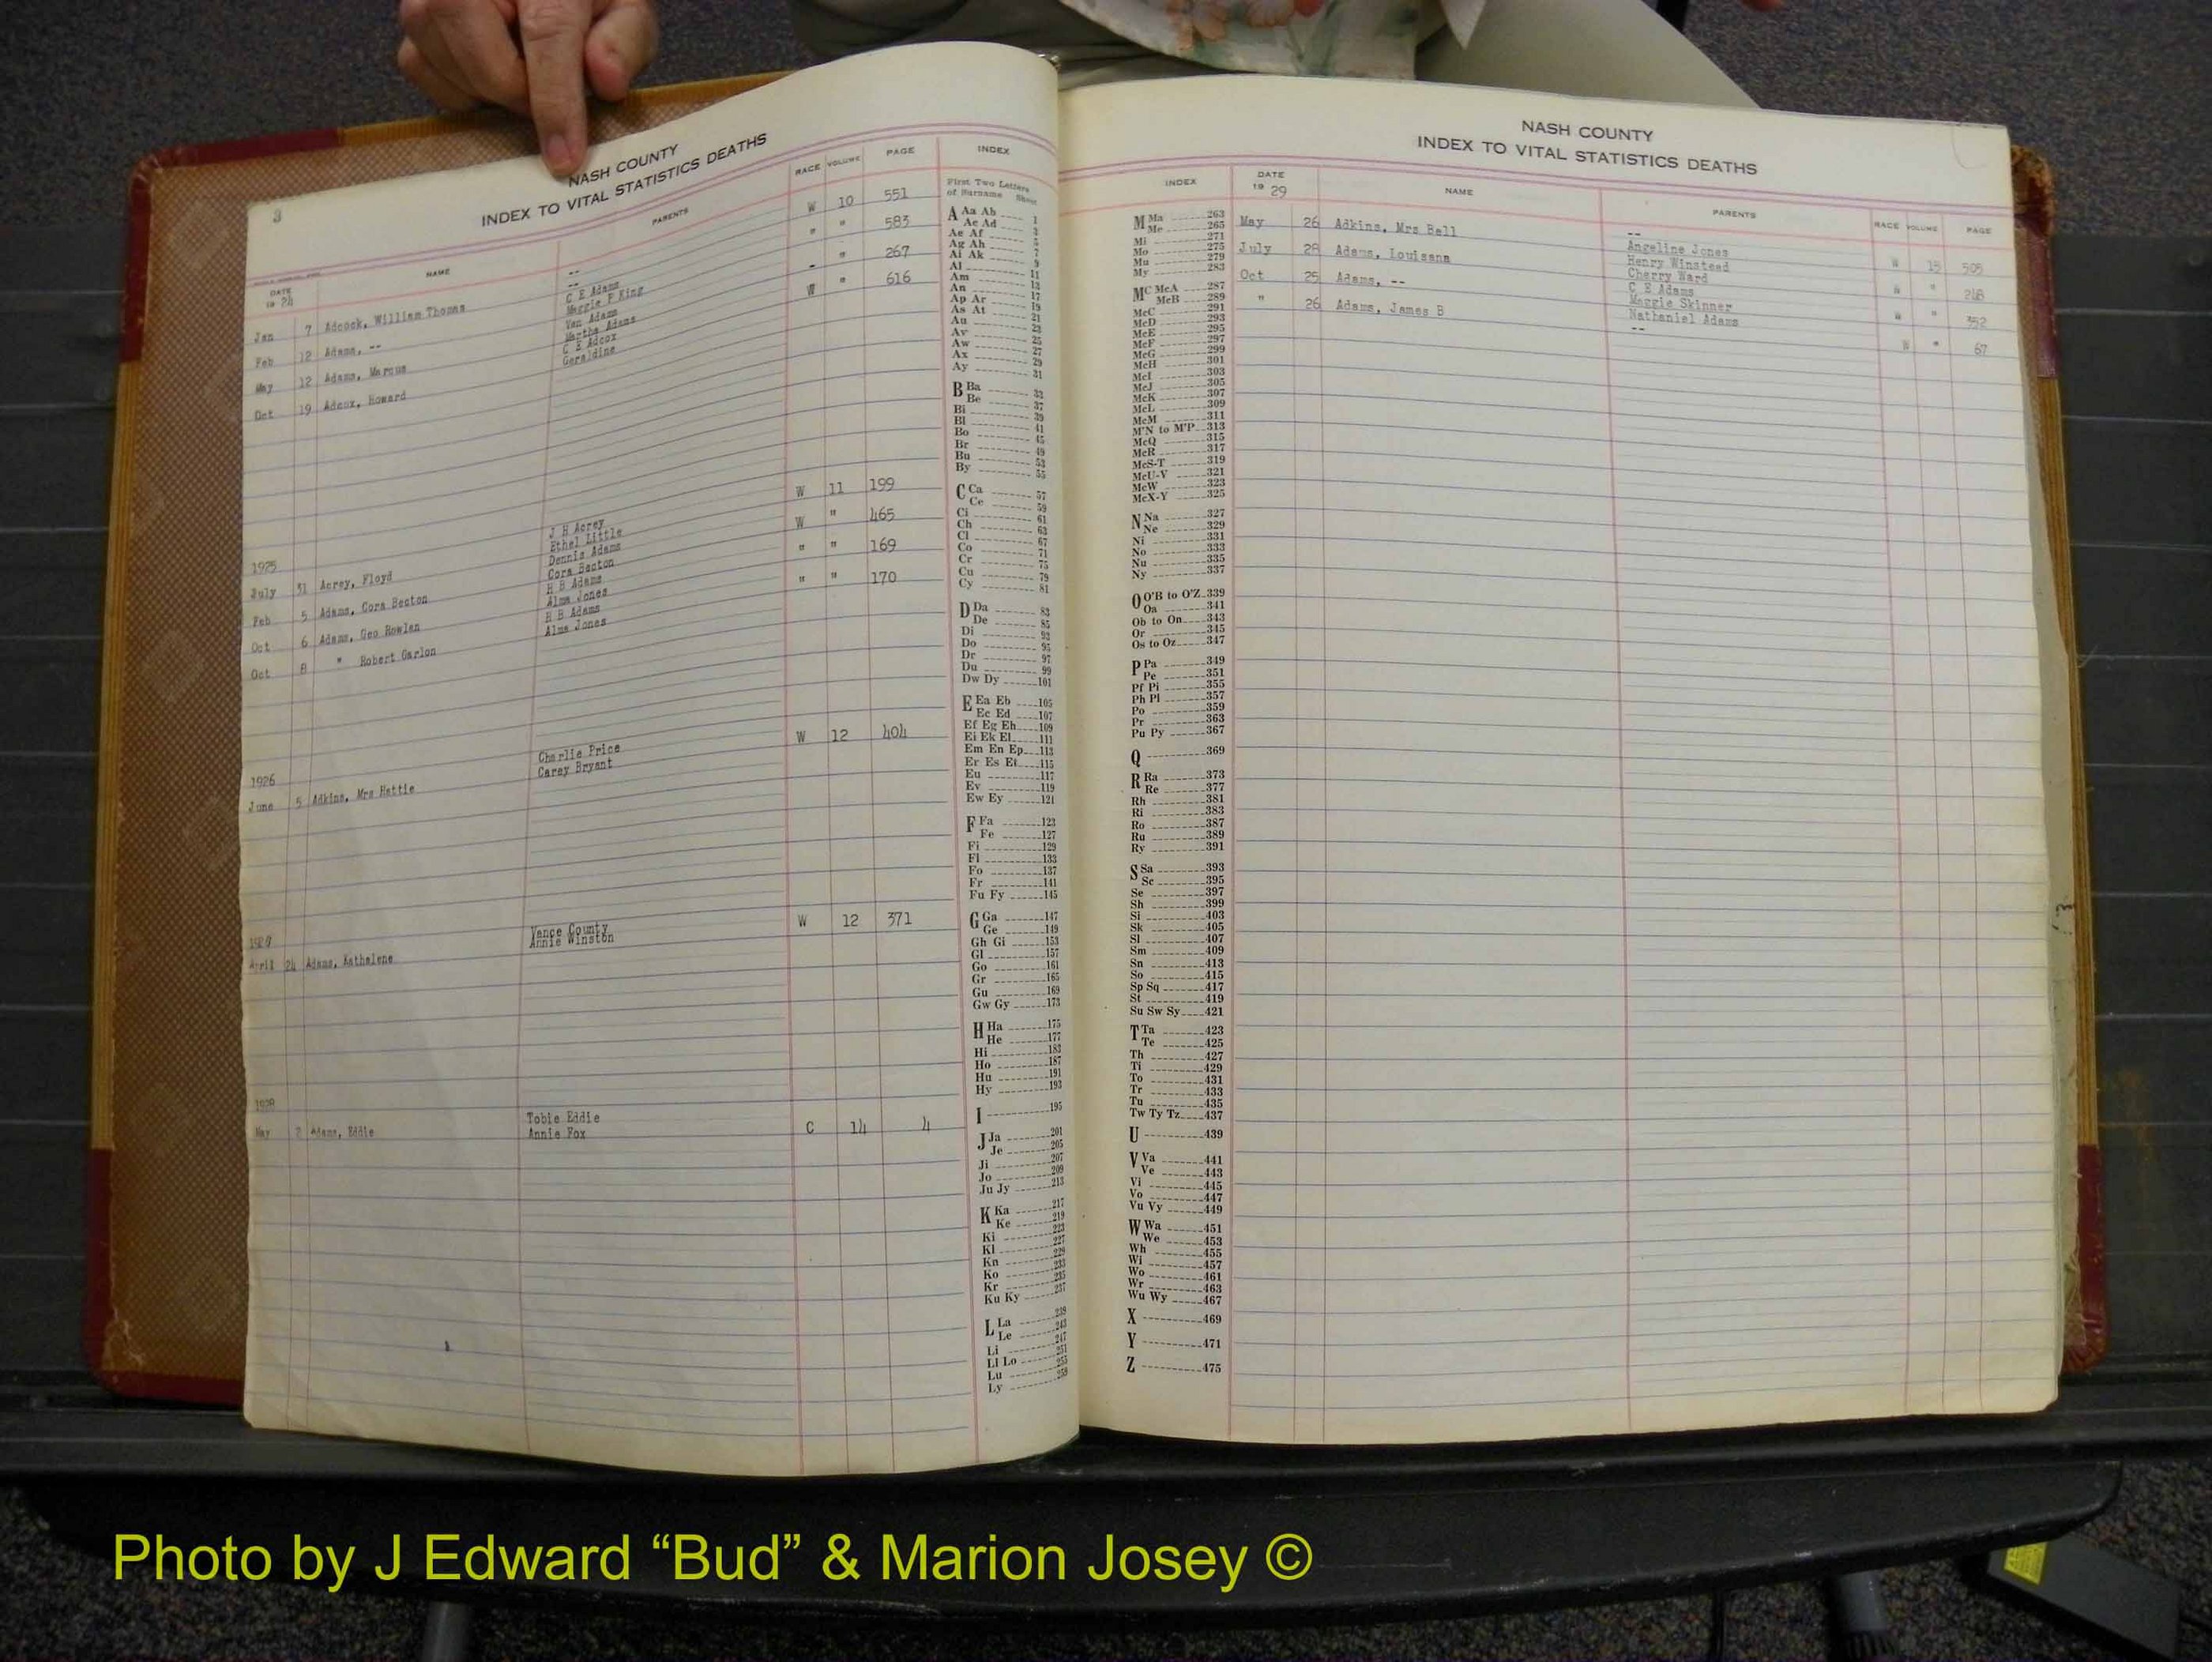 3
NASH COUNTY
INDEX TO VITAL STATISTICS DEATHS
DATE
19 24
NAME
PARENTS
RACE VOLUME PAGE
Jan 7 Adcock, William Thomas -- W 10 551
--
Feb 12 Adams, -- C E Adams " " 583
Maggie P King
May 12 Adams, Marcus Van Adams " " 267
Martha Adams
Oct 19 Adcox, Howard C E Adcox W " 616
Geraldine
1925
July 31 Acrey, Floyd J H Acrey W 11 199
Ethel Little
Feb 5 Adams, Cora Becton Dennis Adams W " 465
Cora Becton
Oct 6 Adams, Geo Rowlen H B Adams " " 169
Alma Jones
Oct 8 " Robert Garlon H B Adams " " 170
Alma Jones
1926
June 5 Adkins, Mrs Hattie Charlie Price W 12 404
Carey Bryant
April 24 Adams, Kathalene Vance County W 12 371
Annie Winston
1928
May 2 Adams, Eddie Tobie Eddie C 14 4
Annie Fox
INDEX
First Two Letters
of Surname Sheet
A Aa Ab 1
Ac Ad 3
Ae Af 5
Ag Ah 7
Ai Ak 9
Al 11
Am 13
An 17
Ap Ar 19
As At 21
Au 23
Av 25
Aw 27
Ax 29
Ay 31
B Ba 33
Be 37
Bi 39
Bl 41
Bo 45
Br 49
Bu 53
By 55
C Ca 57
Ce 59
Ci 61
Ch 63
Cl 67
Co 71
Cr 75
Cu 79
Cy 81
D Da 83
De 85
Di 93
Do 95
Dr 97
Du 99
Dw Dy 101
E Ea Eb 105
Ec Ed 107
Ef Eg Eh 109
Ei Ek El 111
Em En Ep 113
Er Es Et 115
Eu 117
Ev 119
Ew Ey 121
F Fa 123
Fe 127
Fi 129
Fl 133
Fo 137
Fr 141
Fu Fy 145
G Ga 147
Ge 149
Gh Gi 153
Gl 157
Go 161
Gr 165
Gu 169
Gw Gy 173
H Ha 175
He 177
Hi 183
Ho 187
Hu 191
Hy 193
I 195
J Ja 201
Je 205
Ji 207
Jo 209
Ju Jy 213
K Ka 217
Ke 219
Ki 223
Kl 227
Kn 229
Ko 233
Kr 235
Ku Ky 237
L La 239
Le 243
Li 247
Ll Lo 251
Lu 255
Ly 259
NASH COUNTY
INDEX TO VITAL STATISTICS DEATHS
INDEX
M Ma 263
Me 265
Mi 271
Mo 275
Mu 279
My 283
Mc McA 287
McB 289
McC 291
McD 293
McE 295
McF 297
McG 299
McH 301
McI 303
McJ 305
McK 307
McL 309
McM 311
M'N to M'P 313
McQ 315
McR 317
McS-T 319
McU-V 321
McW 323
McX-Y 325
N Na 327
Ne 329
Ni 331
No 333
Nu 335
Ny 337
O O'B to O'Z 339
Oa 341
Ob to On 343
Or 345
Os to Oz 347
P Pa 349
Pe 351
Pf Pi 355
Ph Pl 357
Po 359
Pr 363
Pu Py 367
Q 369
R Ra 373
Re 377
Rh 381
Ri 383
Ro 387
Ru 389
Ry 391
S Sa 393
Sc 395
Se 397
Sh 399
Si 403
Sk 405
Sl 407
Sm 409
Sn 413
So 415
Sp Sq 417
St 419
Su Sw Sy 421
T Ta 423
Te 425
Th 427
Ti 429
To 431
Tr 433
Tu 435
Tw Ty Tz 437
U 439
V Va 441
Ve 443
Vi 445
Vo 447
Vu Vy 449
W Wa 451
We 453
Wh 455
Wi 457
Wo 461
Wr 463
Wu Wy 467
X 469
Y 471
Z 475
DATE
19 29
NAME
PARENTS
RACE VOLUME PAGE
May 26 Adkins, Mrs Bell --
Angeline Jones W 15 505
July 28 Adams, Louisana Henry Winstead
Cherry Ward W " 248
Oct 25 Adams, -- C E Adams
Maggie Skinner W " 352
" 26 Adams, James B Nathaniel Adams
-- W " 67
Photo by J Edward “Bud” & Marion Josey ©